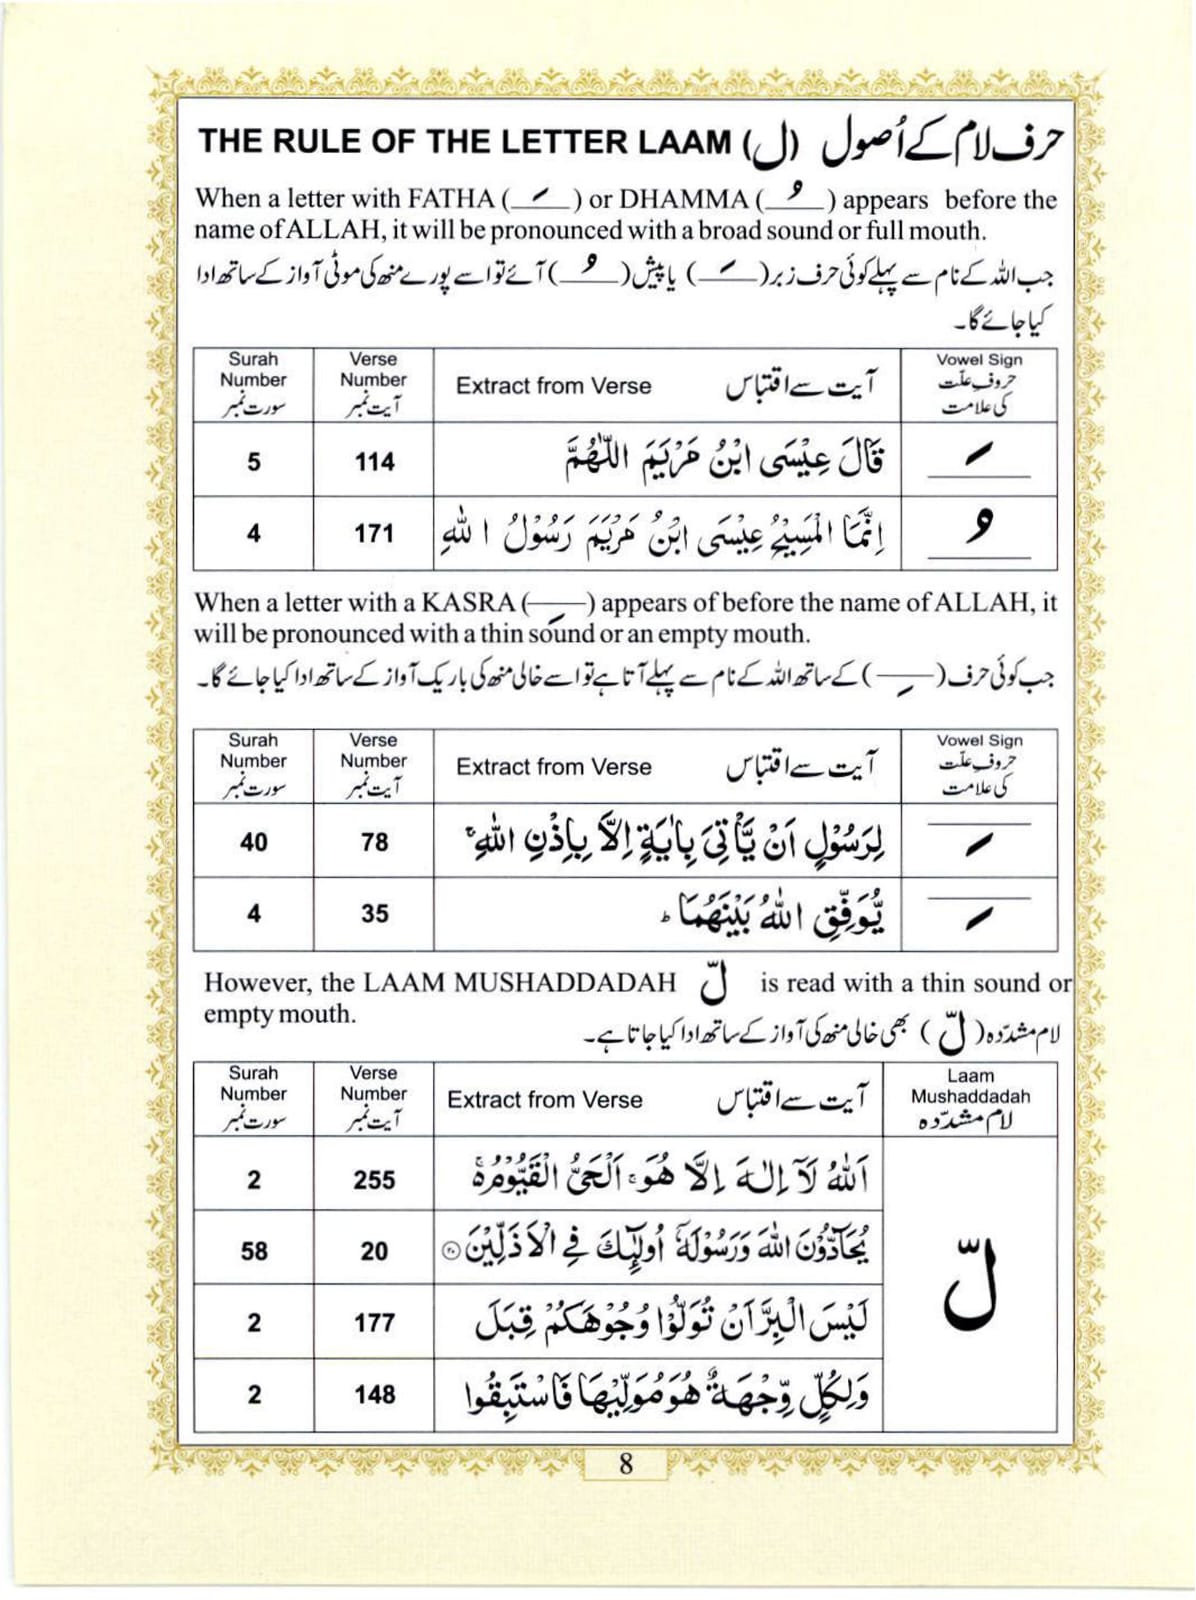 THE RULE OF THE LETTER LAAM (ل) حرف لام کے اُصول
When a letter with FATHA (ـَـ) or DHAMMA (ـُـ) appears before the
name of ALLAH, it will be pronounced with a broad sound or full mouth.
جب اللہ کے نام سے پہلے کوئی حرف زبر (ـَـ) یا پیش (ـُـ) آئے تو اسے پورے منھ کی موٹی آواز کے ساتھ ادا
کیا جائے گا۔
Surah Number سورت نمبر | Verse Number آیت نمبر | Extract from Verse آیت سے اقتباس | Vowel Sign حروفِ علّت کی علامت
5 | 114 | قَالَ عِيْسَى ابْنُ مَرْيَمَ اللّٰهُمَّ | ـَـ
4 | 171 | اِنَّمَا الْمَسِيْحُ عِيْسَى ابْنُ مَرْيَمَ رَسُوْلُ اللّٰهِ | ـُـ
When a letter with a KASRA (ـِـ) appears of before the name of ALLAH, it
will be pronounced with a thin sound or an empty mouth.
جب کوئی حرف (ـِـ) کے ساتھ اللہ کے نام سے پہلے آتا ہے تو اسے خالی منھ کی باریک آواز کے ساتھ ادا کیا جائے گا۔
Surah Number سورت نمبر | Verse Number آیت نمبر | Extract from Verse آیت سے اقتباس | Vowel Sign حروفِ علّت کی علامت
40 | 78 | لِرَسُوْلٍ اَنْ يَّاْتِىَ بِاٰيَةٍ اِلَّا بِاِذْنِ اللّٰهِ ۚ | ـِـ
4 | 35 | يُّوَفِّقِ اللّٰهُ بَيْنَهُمَا ؕ | ـِـ
However, the LAAM MUSHADDADAH لّ is read with a thin sound or
empty mouth.
لام مشدّدہ (لّ) بھی خالی منھ کی آواز کے ساتھ ادا کیا جاتا ہے۔
Surah Number سورت نمبر | Verse Number آیت نمبر | Extract from Verse آیت سے اقتباس | Laam Mushaddadah لام مشدّدہ
2 | 255 | اَللّٰهُ لَاۤ اِلٰهَ اِلَّا هُوَ ۚ اَلْحَىُّ الْقَيُّوْمُ ۚ | لّ
58 | 20 | يُحَآدُّوْنَ اللّٰهَ وَرَسُوْلَهٗۤ اُولٰٓئِكَ فِى الْاَذَلِّيْنَ ۝۲۰
2 | 177 | لَيْسَ الْبِرَّ اَنْ تُوَلُّوْا وُجُوْهَكُمْ قِبَلَ
2 | 148 | وَلِكُلٍّ وِّجْهَةٌ هُوَ مُوَلِّيْهَا فَاسْتَبِقُوا
8